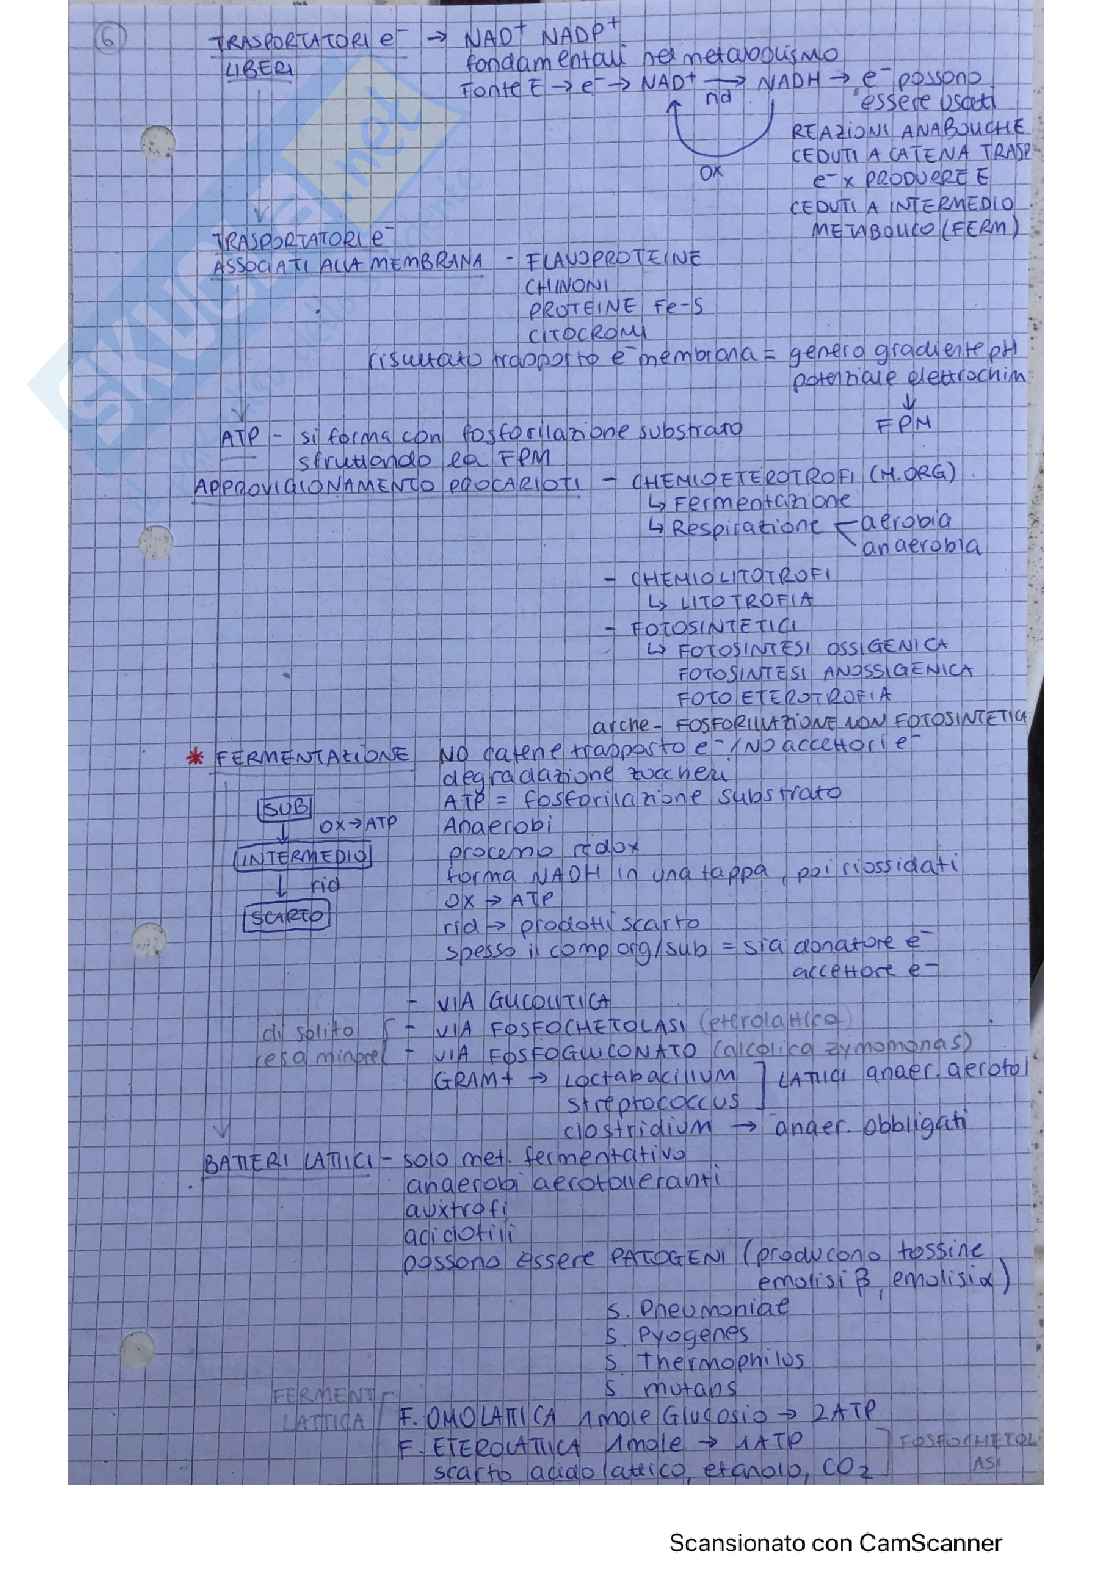 6
TRASPORTATORI e⁻ → NAD⁺ NADP⁺
LIBERI
fondamentali nel metabolismo
Fonte E → e⁻ → NAD⁺ → NADH → e⁻ possono
rid
essere usati
OX
REAZIONI ANABOLICHE
CEDUTI A CATENA TRASP.
e⁻ x PRODURRE E
CEDUTI A INTERMEDIO
METABOLICO (FERM)
TRASPORTATORI e⁻
ASSOCIATI ALLA MEMBRANA - FLAVOPROTEINE
CHINONI
PROTEINE Fe-S
CITOCROMI
risultato trasporto e⁻ membrana = genera gradiente pH
potenziale elettrochim
↓
FPM
ATP - si forma con fosforilazione substrato
sfruttando la FPM
APPROVIGIONAMENTO PROCARIOTI - CHEMIOETEROTROFI (M.ORG).
↳ Fermentazione
↳ Respirazione < aerobia
anaerobia
- CHEMIOLITOTROFI
↳ LITOTROFIA
- FOTOSINTETICI
↳ FOTOSINTESI OSSIGENICA
FOTOSINTESI ANOSSIGENICA
FOTOETEROTROFIA
arche - FOSFORILLAZIONE NON FOTOSINTETICA
* FERMENTAZIONE NO catene trasporto e⁻/NO accettori e⁻
degradazione zuccheri
ATP = fosforilazione substrato
Anaerobi
processo redox
forma NADH in una tappa, poi riossidati
OX → ATP
rid → prodotti scarto
spesso il comp org/sub = sia donatore e⁻
accettore e⁻
SUB
↓ OX→ATP
INTERMEDIO
↓ rid
SCARTO
- VIA GLICOLITICA
di solito - VIA FOSFOCHETOLASI (eterolattica)
resa minore - VIA FOSFOGLUCONATO (alcolica zymomonas)
GRAM+ → Lactobacillum ] LATTICI anaer. aerotol
streptococcus
clostridium → anaer. obbligati
BATTERI LATTICI - solo met. fermentativo
anaerobi aerotolleranti
auxtrofi
acidofili
possono essere PATOGENI (producono tossine
emolisi β, emolisi α)
S. Pneumoniae
S. Pyogenes
S. Thermophilus
S. mutans
FERMENT
LATTICA
F. OMOLATTICA 1 mole Glucosio → 2ATP
F. ETEROLATTICA 1 mole → 1 ATP
scarto acido lattico, etanolo, CO₂
FOSFOCHETOL
ASI
SKUOLA.net
Scansionato con CamScanner